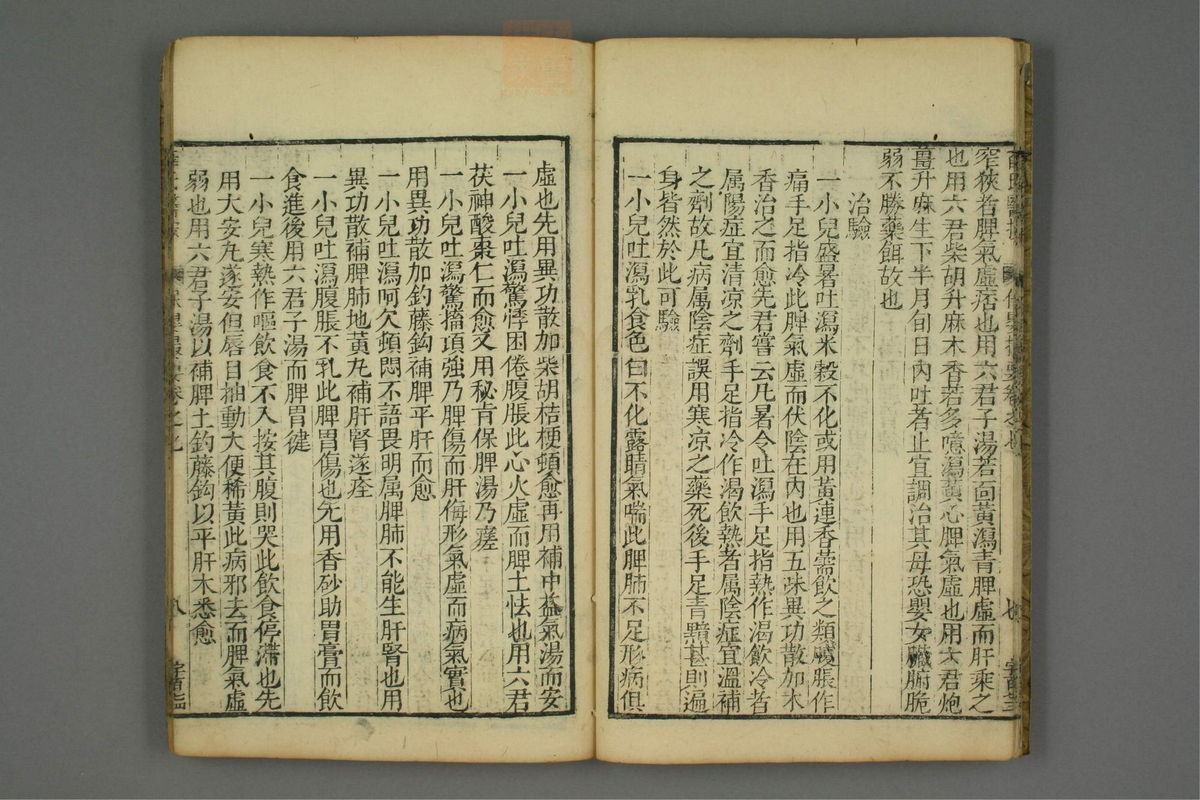 窄狹者脾氣虛痞也用六君子湯若面黃瀉青脾虛而肝乘之
也用六君柴胡升麻木香若多噫瀉黃心脾氣虛也用六君炮
薑升麻生下半月旬日內吐者止宜調治其母恐嬰女臟腑脆
弱不勝藥餌故也
治驗
一小兒盛暑吐瀉米穀不化或用黃連香薷飲之類臟脹作
痛手足指冷此脾氣虛而伏陰在內也用五味異功散加木
香治之而愈先君嘗云凡暑令吐瀉手足指熱作渴飲冷者
属陽症宜清凉之劑手足指冷作渴飲熱者属陰症宜溫補
之劑故凡病属陰症誤用寒凉之藥死後手足青黯甚則遍
身皆然於此可驗
一小兒吐瀉乳食色白不化露睛氣喘此脾肺不足形病俱
虛也先用異功散加柴胡桔梗頓愈再用補中益氣湯而安
一小兒吐瀉驚悸困倦腹脹此心火虛而脾土怯也用六君
茯神酸棗仁而愈又用秘肯保脾湯乃瘥
一小兒吐瀉驚搐項強乃脾傷而肝侮形氣虛而病氣實也
用異功散加釣藤鈎補脾平肝而愈
一小兒吐瀉呵欠頓悶不語畏明属脾肺不能生肝腎也用
異功散補脾肺地黃丸補肝腎遂痊
一小兒吐瀉腹脹不乳此脾胃傷也先用香砂助胃膏而飲
食進後用六君子湯而脾胃健
一小兒寒熱作嘔飲食不入按其腹則哭此飲食停滯也先
用大安丸遂安但唇目抽動大便稀黃此病邪去而脾氣虛
弱也用六君子湯以補脾土釣藤鈎以平肝木悉愈